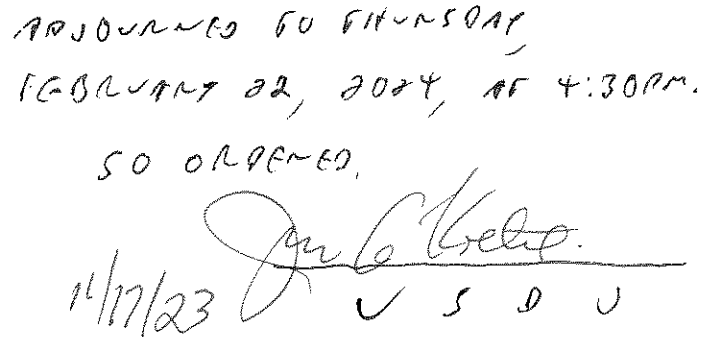 ADJOURNED TO THURSDAY,
FEBRUARY 22, 2024, AT 4:30PM.
SO ORDERED.
11/17/23
U S D J